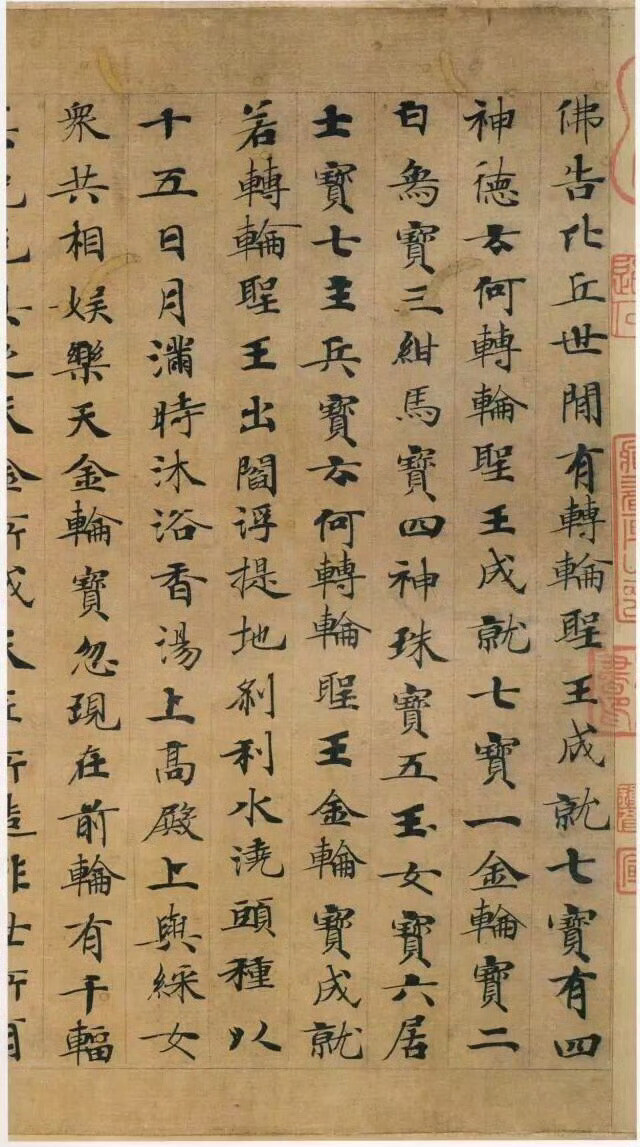 佛告比丘世閒有轉輪聖王成就七寶有四
神德云何轉輪聖王成就七寶一金輪寶二
白象寶三紺馬寶四神珠寶五玉女寶六居
士寶七主兵寶云何轉輪聖王金輪寶成就
若轉輪聖王出閻浮提地剎利水澆頭種以
十五日月滿時沐浴香湯上高殿上與綵女
衆共相娛樂天金輪寶忽現在前輪有千輻
光色具足天金所成天匠所造非世所有